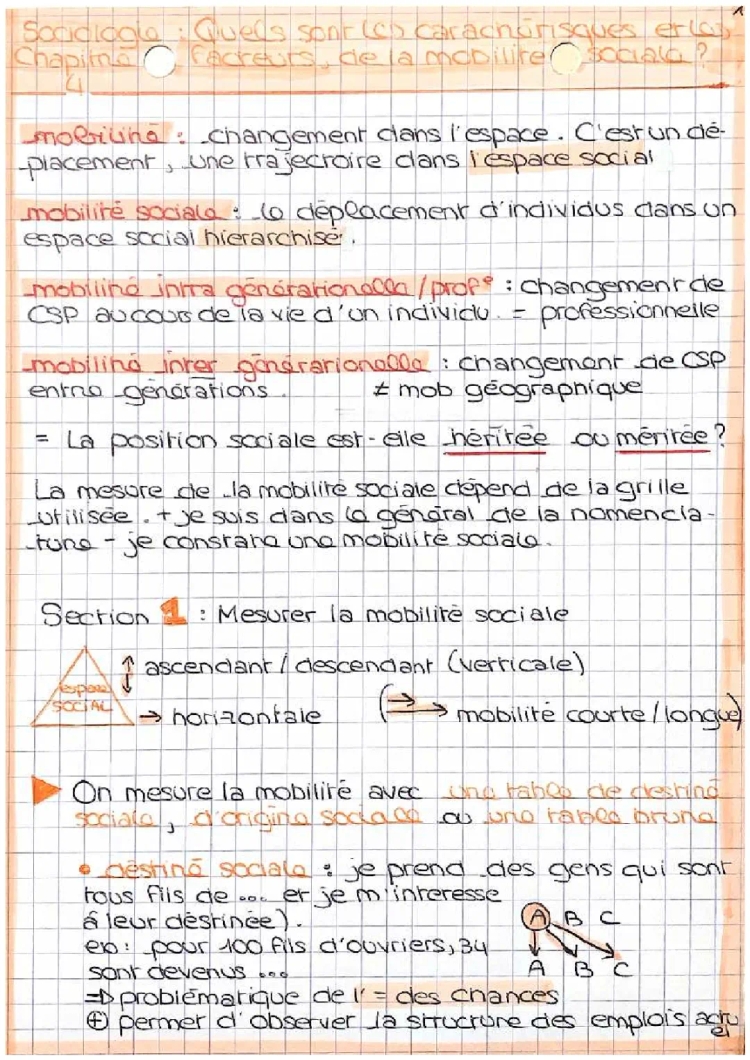 1
Sociologie : Quels sont les caractéristiques et les
Chapitre facteurs de la mobilité sociale ?
4
mobilité : changement dans l'espace. C'est un dé-
placement, une trajectoire dans l'espace social
mobilité sociale : le déplacement d'individus dans un
espace social hierarchisé.
mobilité intra générationnelle / prof° : changement de
CSP au cours de la vie d'un individu. = professionnelle
mobilité inter générationelle : changement de CSP
entre générations. ≠ mob géographique
= La position sociale est-elle héritée ou méritée ?
La mesure de la mobilité sociale dépend de la grille
utilisée. + je suis dans le général de la nomencla-
ture - je constate une mobilité sociale.
Section 1 : Mesurer la mobilité sociale
↑ ascendant / descendant (verticale)
espace
SOCIAL
→ horizontale (→ mobilité courte / longue)
On mesure la mobilité avec une table de destiné
sociale, d'origine sociale ou une table brune
• destiné sociale : je prend des gens qui sont
tous fils de ... et je m'interesse
à leur destinée).
ex : pour 100 fils d'ouvriers, 34
sont devenus ...
A B C
A B C
⇒ problématique de l' = des chances
⊕ permet d'observer la structure des emplois actu
el